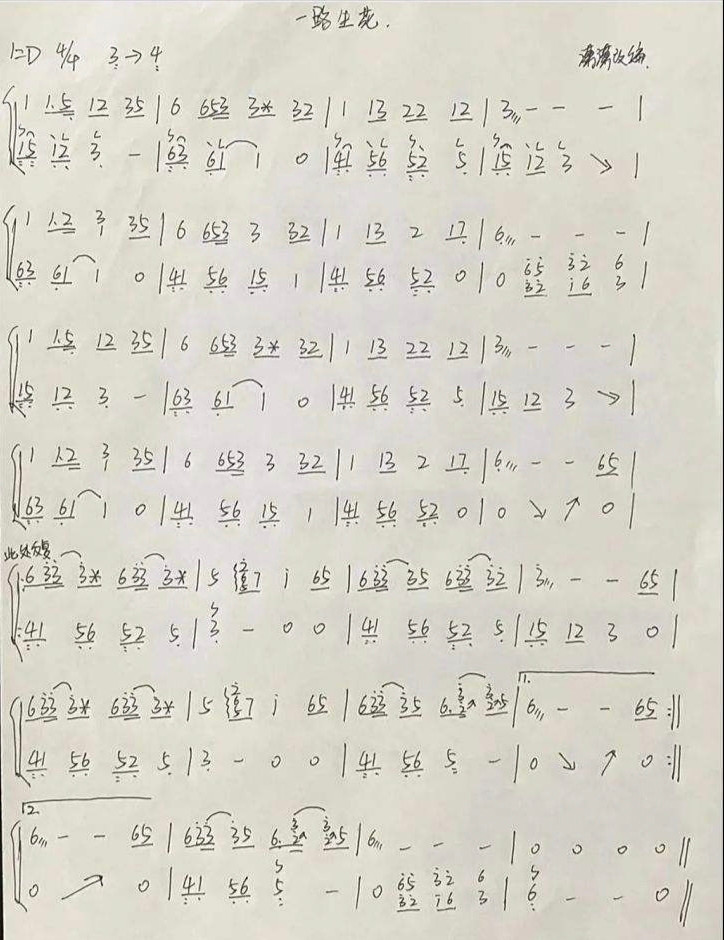 一路生花.
1=D 4/4 3→4 满满改编
1 1.5 12 35 | 6 653 3* 32 | 1 13 22 12 | 3 - - - |
15 12 3 - | 63 61 1 0 | 41 56 52 5 | 15 12 3 ↘ |
1 1.2 3 35 | 6 653 3 32 | 1 13 2 17 | 6 - - - |
63 61 1 0 | 41 56 15 1 | 41 56 52 0 | 0 65 32 6 |
32 16 3
1 1.5 12 35 | 6 653 3* 32 | 1 13 22 12 | 3 - - - |
15 12 3 - | 63 61 1 0 | 41 56 52 5 | 15 12 3 ↘ |
1 1.2 3 35 | 6 653 3 32 | 1 13 2 17 | 6 - - 65 |
63 61 1 0 | 41 56 15 1 | 41 56 52 0 | 0 ↘ ↗ 0 |
此处反复
6 33 3* 633 3* | 5 7 i 65 | 633 35 633 32 | 3 - - 65 |
41 56 52 5 | 3 - 0 0 | 41 56 52 5 | 15 12 3 0 |
1.
633 3* 633 3* | 5 7 i 65 | 633 35 6. 5 | 6 - - 65 :||
41 56 52 5 | 3 - 0 0 | 41 56 5 - | 0 ↘ ↗ 0 :||
2.
6 - - 65 | 633 35 6. 5 | 6 - - - | 0 0 0 0 ||
0 ↗ 0 | 41 56 5 - | 0 65 32 6 | 6 - - 0 ||
32 16 3